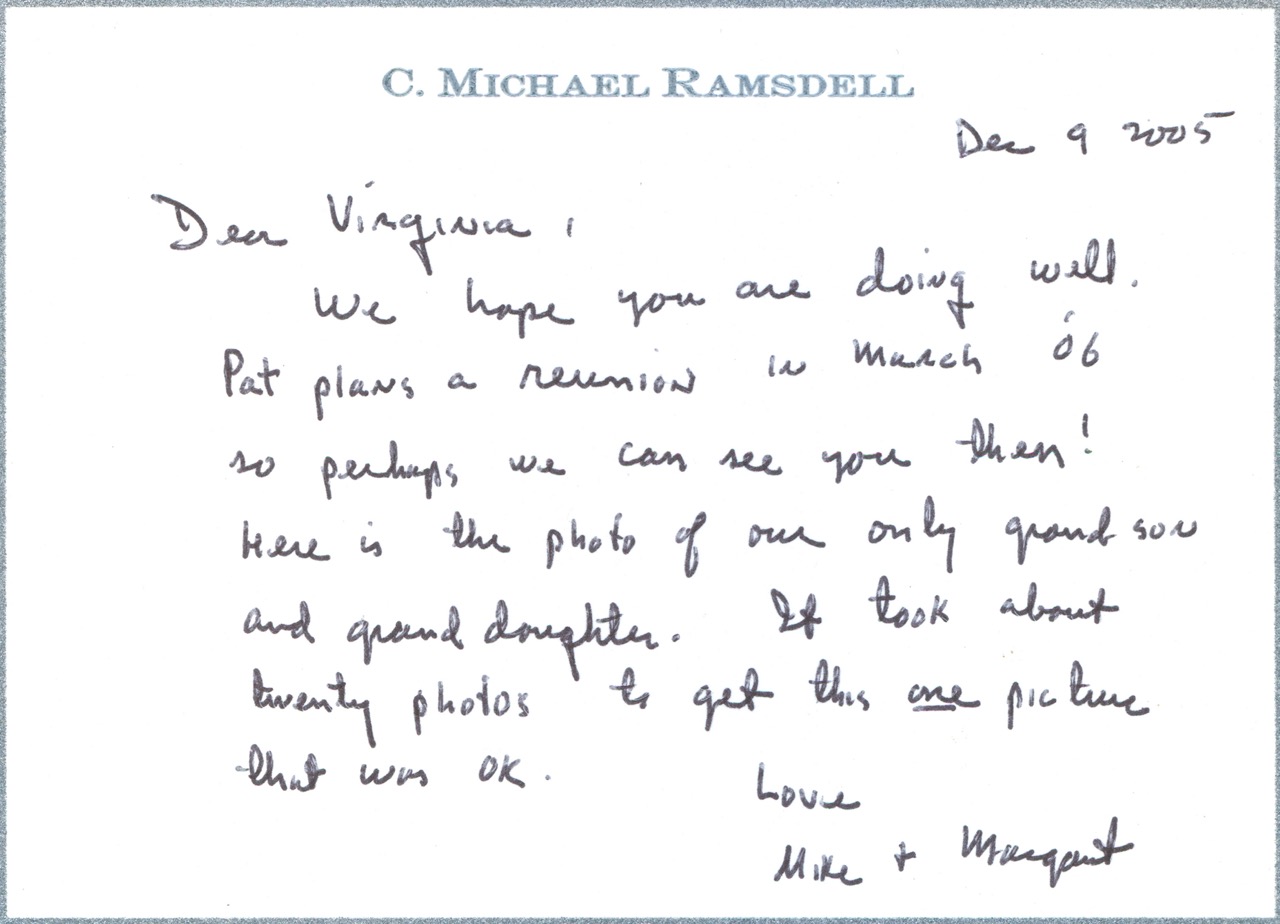 C. MICHAEL RAMSDELL
Dec 9 2005
Dear Virginia,
We hope you are doing well.
Pat plans a reunion in March '06
so perhaps we can see you then!
Here is the photo of our only grand son
and grand daughter. It took about
twenty photos to get this one picture
that was OK.
Love
Mike + Margaret